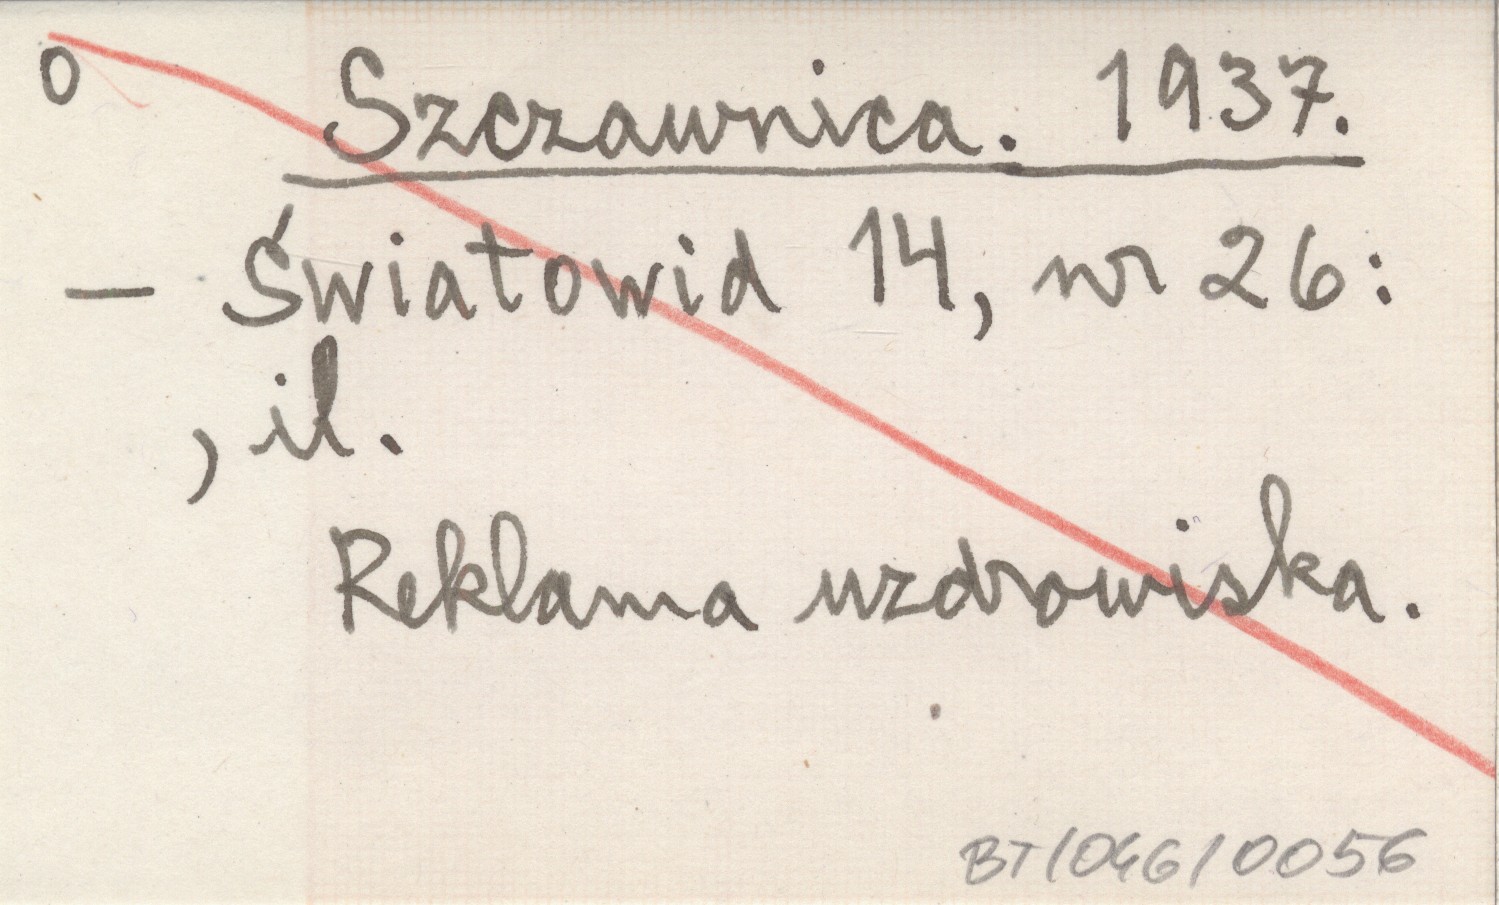 o Szczawnica. 1937.
— Światowid 14, nr 26:
, il.
Reklama uzdrowiska.
BT/046/0056